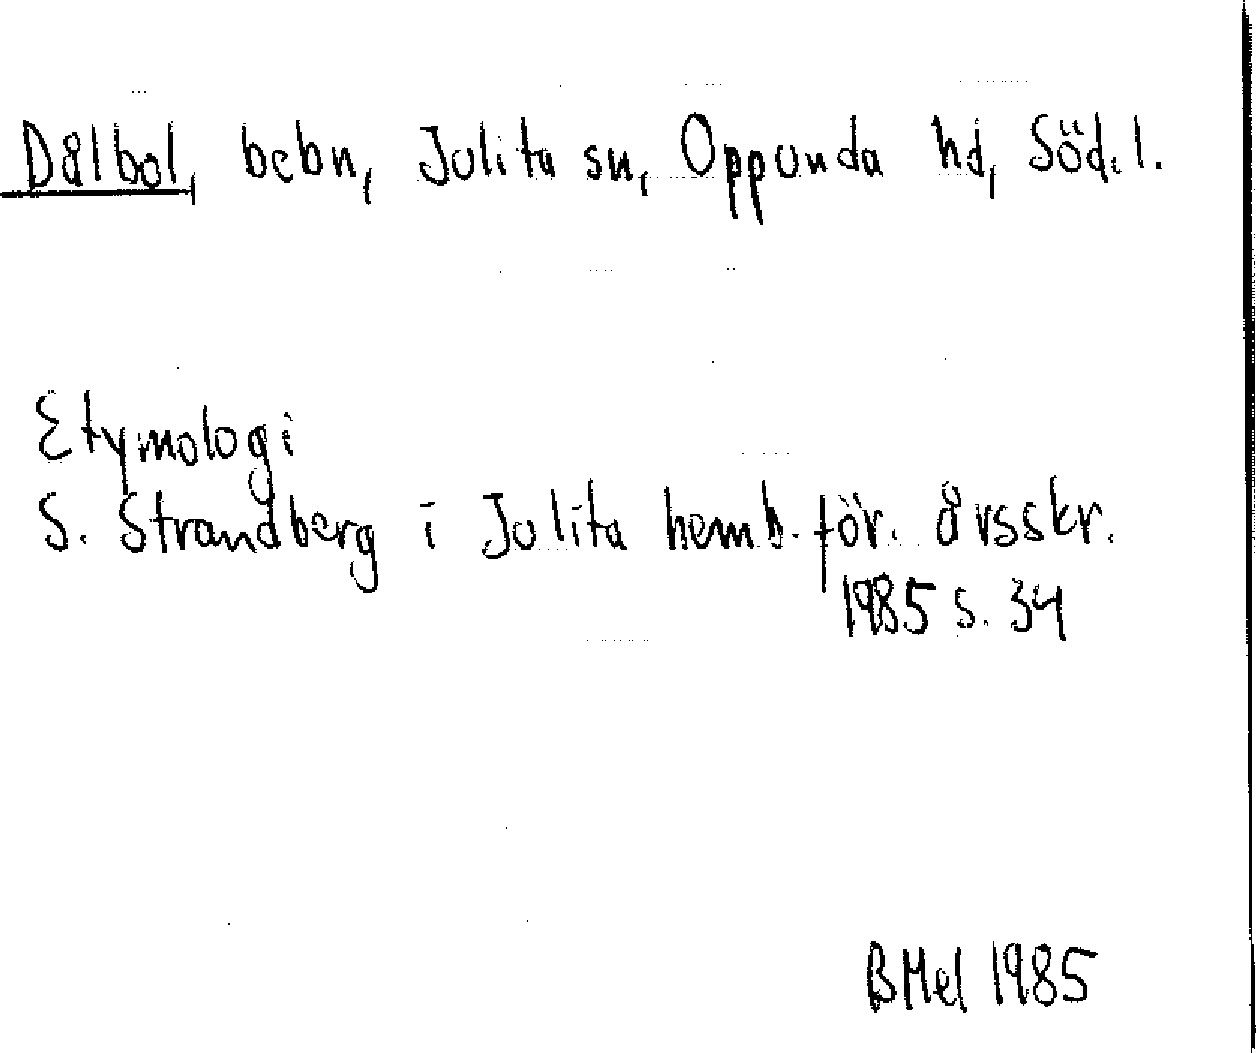 Dålbol, bebn, Julita sn, Oppunda hd, Södl.
Etymologi
S. Strandberg i Julita hemb.för. årsskr.
1985 s. 34
BMel 1985